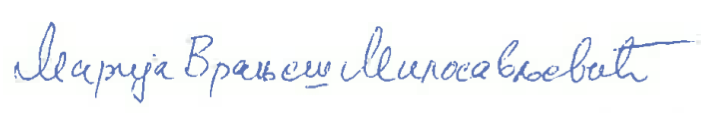 Марија Врањеш Милосављевић